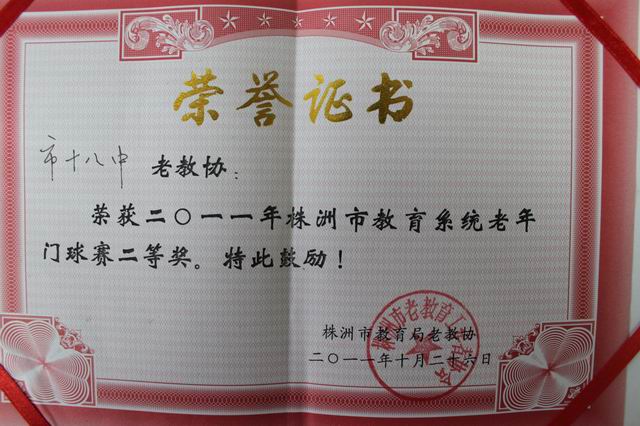 荣誉证书
市十八中 老教协：
荣获二〇一一年株洲市教育系统老年
门球赛二等奖。特此鼓励！
株洲市教育局老教协
二〇一一年十月二十六日
株洲市老教育工作者协会